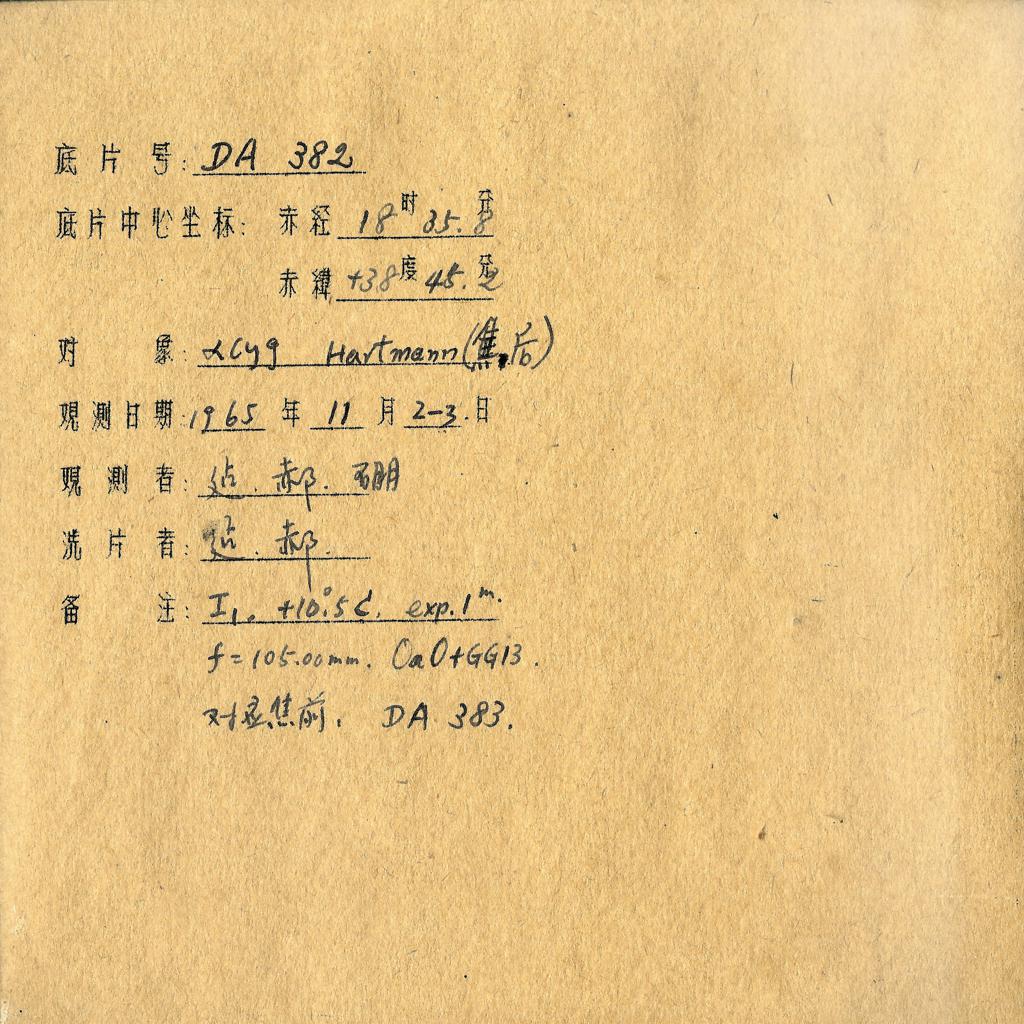 底片号: DA 382
底片中心坐标: 赤经 18时35.8分
赤纬 +38度45.2分
对象: αCyg Hartmann(焦后)
观测日期: 1965年11月2-3.日
观测者: 郝. 硼
洗片者: 郝.
备注: I1. +10.°5C. exp. 1m.
f=105.00mm. OaO+GG13.
对应焦前, DA 383.